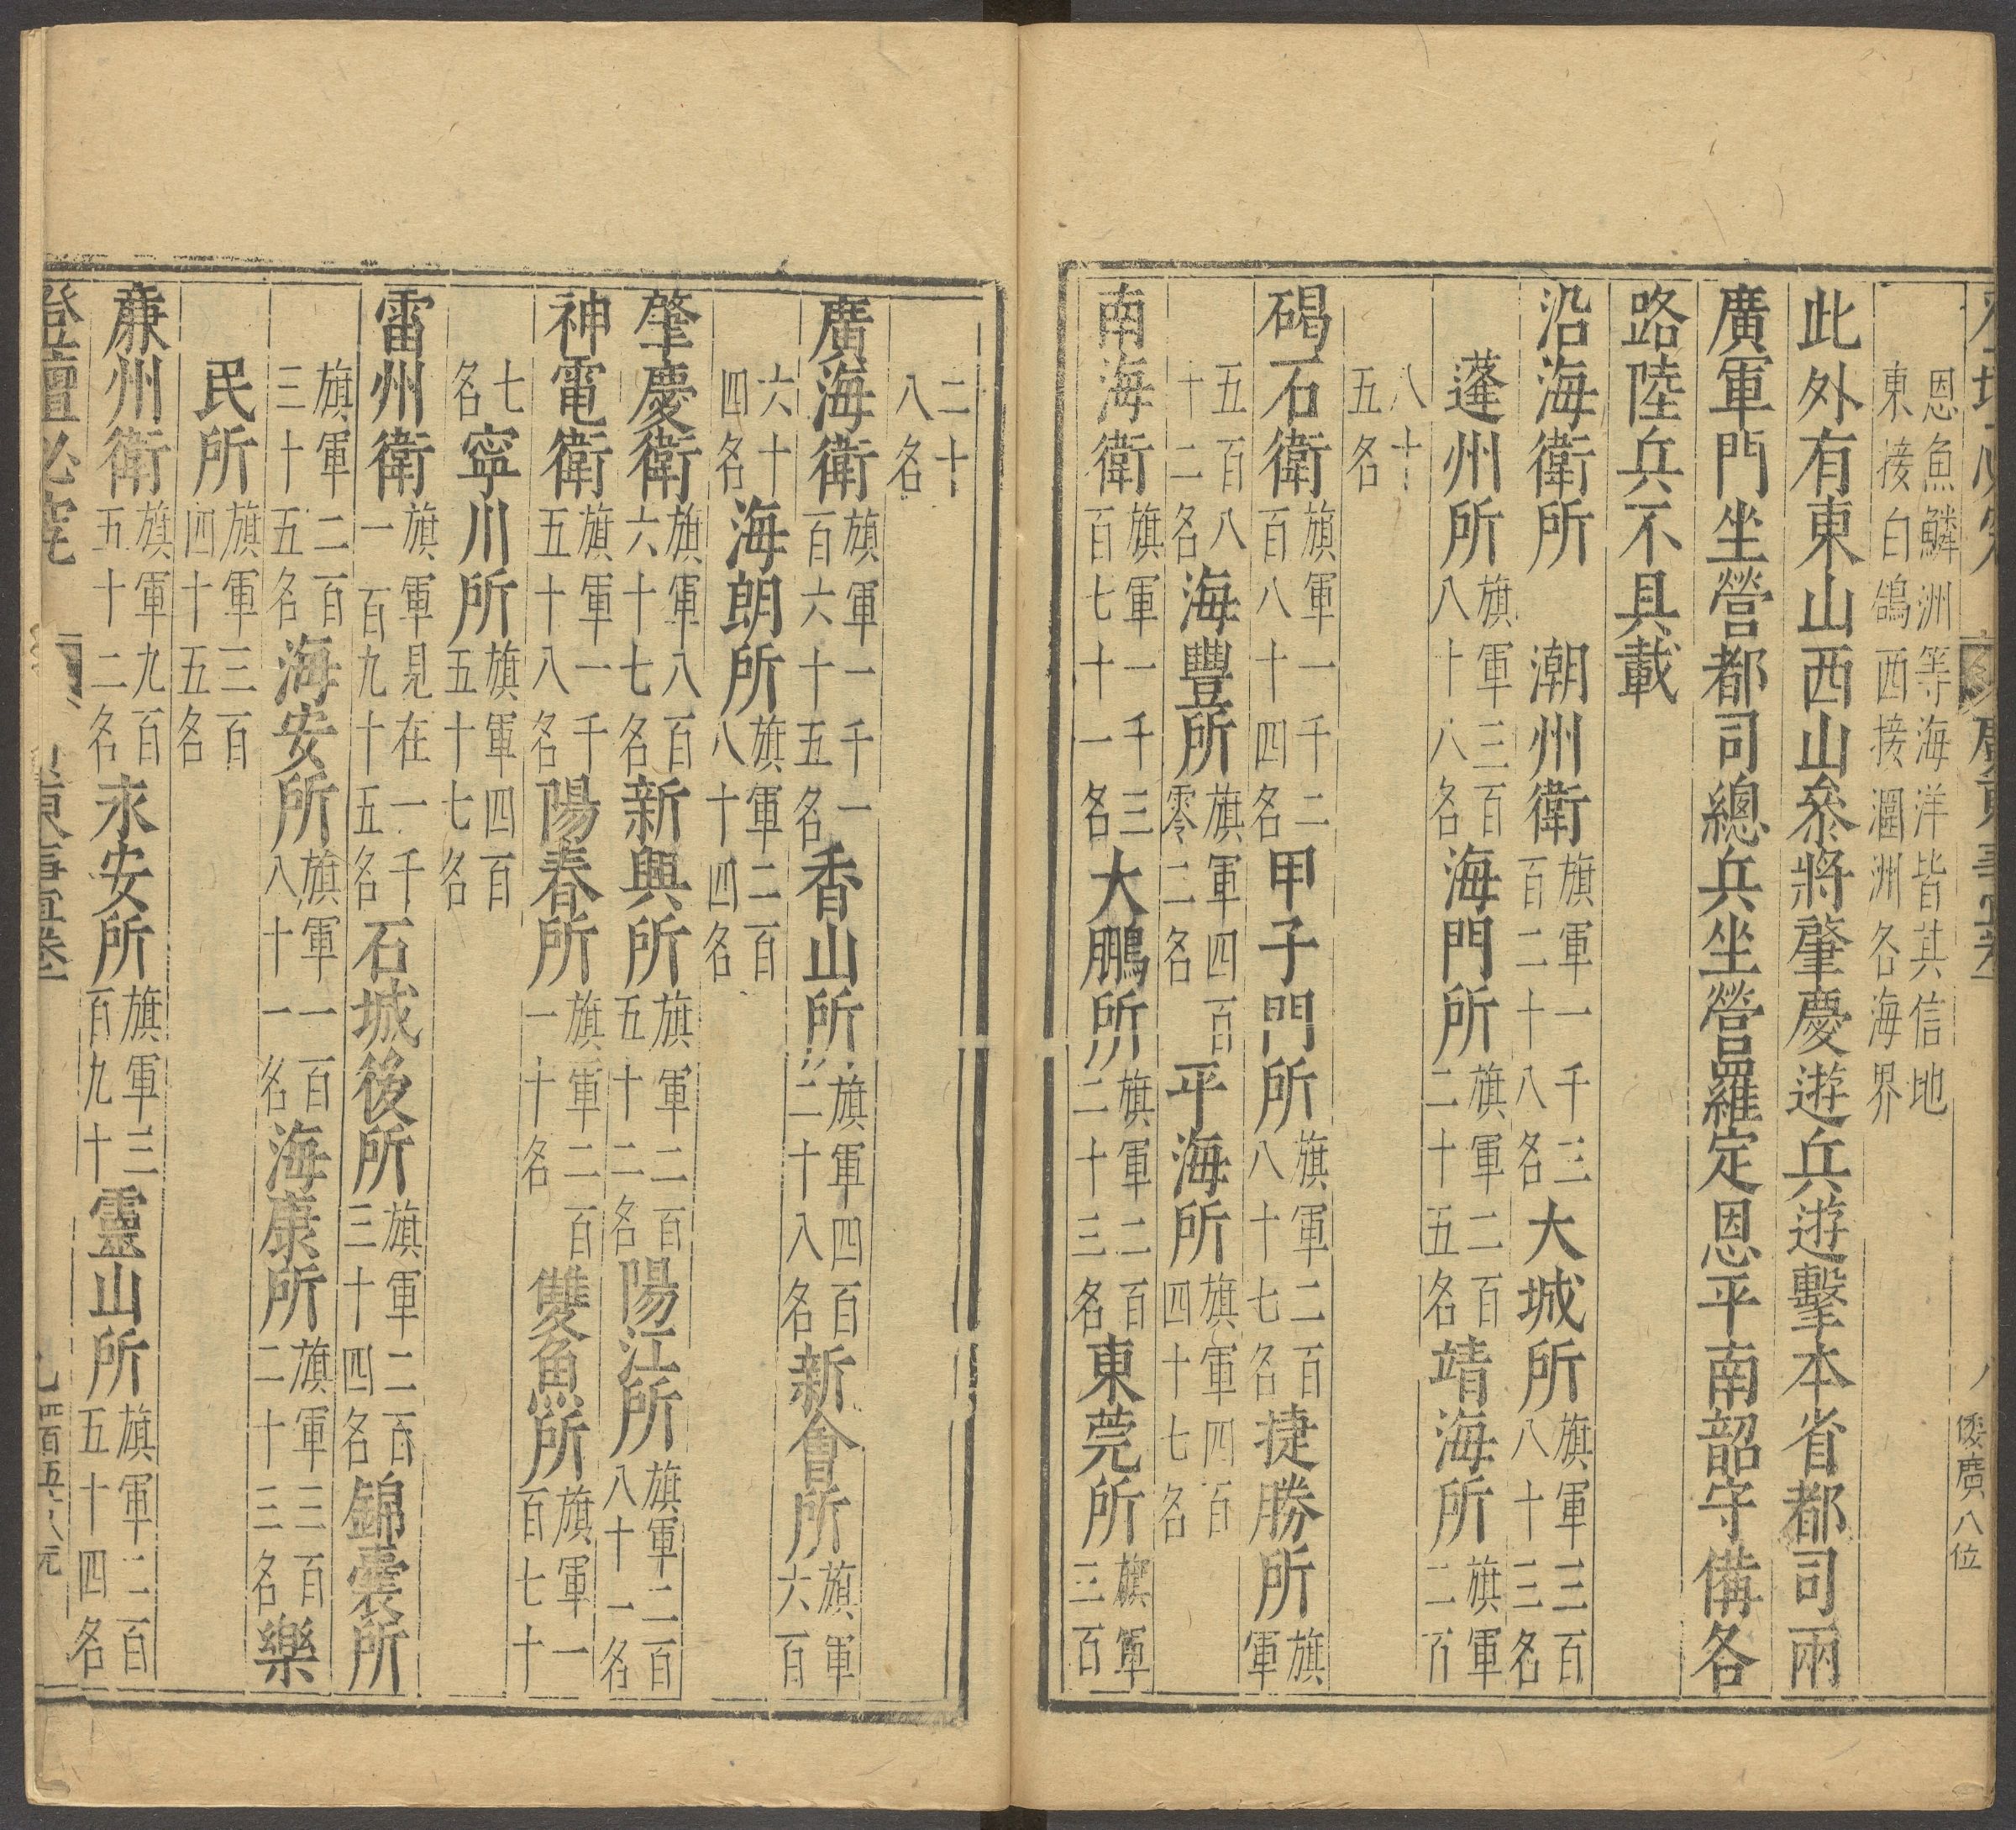 恩魚鱗洲等海洋皆其信地
東接白鴿西接潿洲各海界
此外有東山西山叅將肇慶遊兵遊擊本省都司兩
廣軍門坐營都司總兵坐營羅定恩平南韶守備各
路陸兵不具載
沿海衛所　潮州衛旗軍一千三百二十八名大城所旗軍三百八十三名
蓬州所旗軍三百八十八名海門所旗軍二百二十五名靖海所旗軍二百
八十五名
碣石衛旗軍一千二百八十四名甲子門所旗軍二百八十七名捷勝所旗軍
五百八十二名海豐所旗軍四百零二名平海所旗軍四百四十七名
南海衛旗軍一千三百七十一名大鵬所旗軍二百二十三名東莞所旗軍三百
二十八名
廣海衛旗軍一千一百六十五名香山所旗軍四百二十八名新會所旗軍六百
六十四名海朗所旗軍二百八十四名
肇慶衛旗軍八百六十七名新興所旗軍二百五十二名陽江所旗軍二百八十一名
神電衛旗軍一千五十八名陽春所旗軍二百一十名雙魚所旗軍一百七十
七名寧川所旗軍四百五十七名
雷州衛旗軍見在一千一百九十五名石城後所旗軍二百三十四名錦囊所
旗軍二百三十五名海安所旗軍一百八十一名海康所旗軍三百二十三名樂
民所旗軍三百四十五名
廉州衛旗軍九百五十二名永安所旗軍三百九十靈山所旗軍二百五十四名
登壇必究
東事宜卷
四百五十八元
倭廣八位